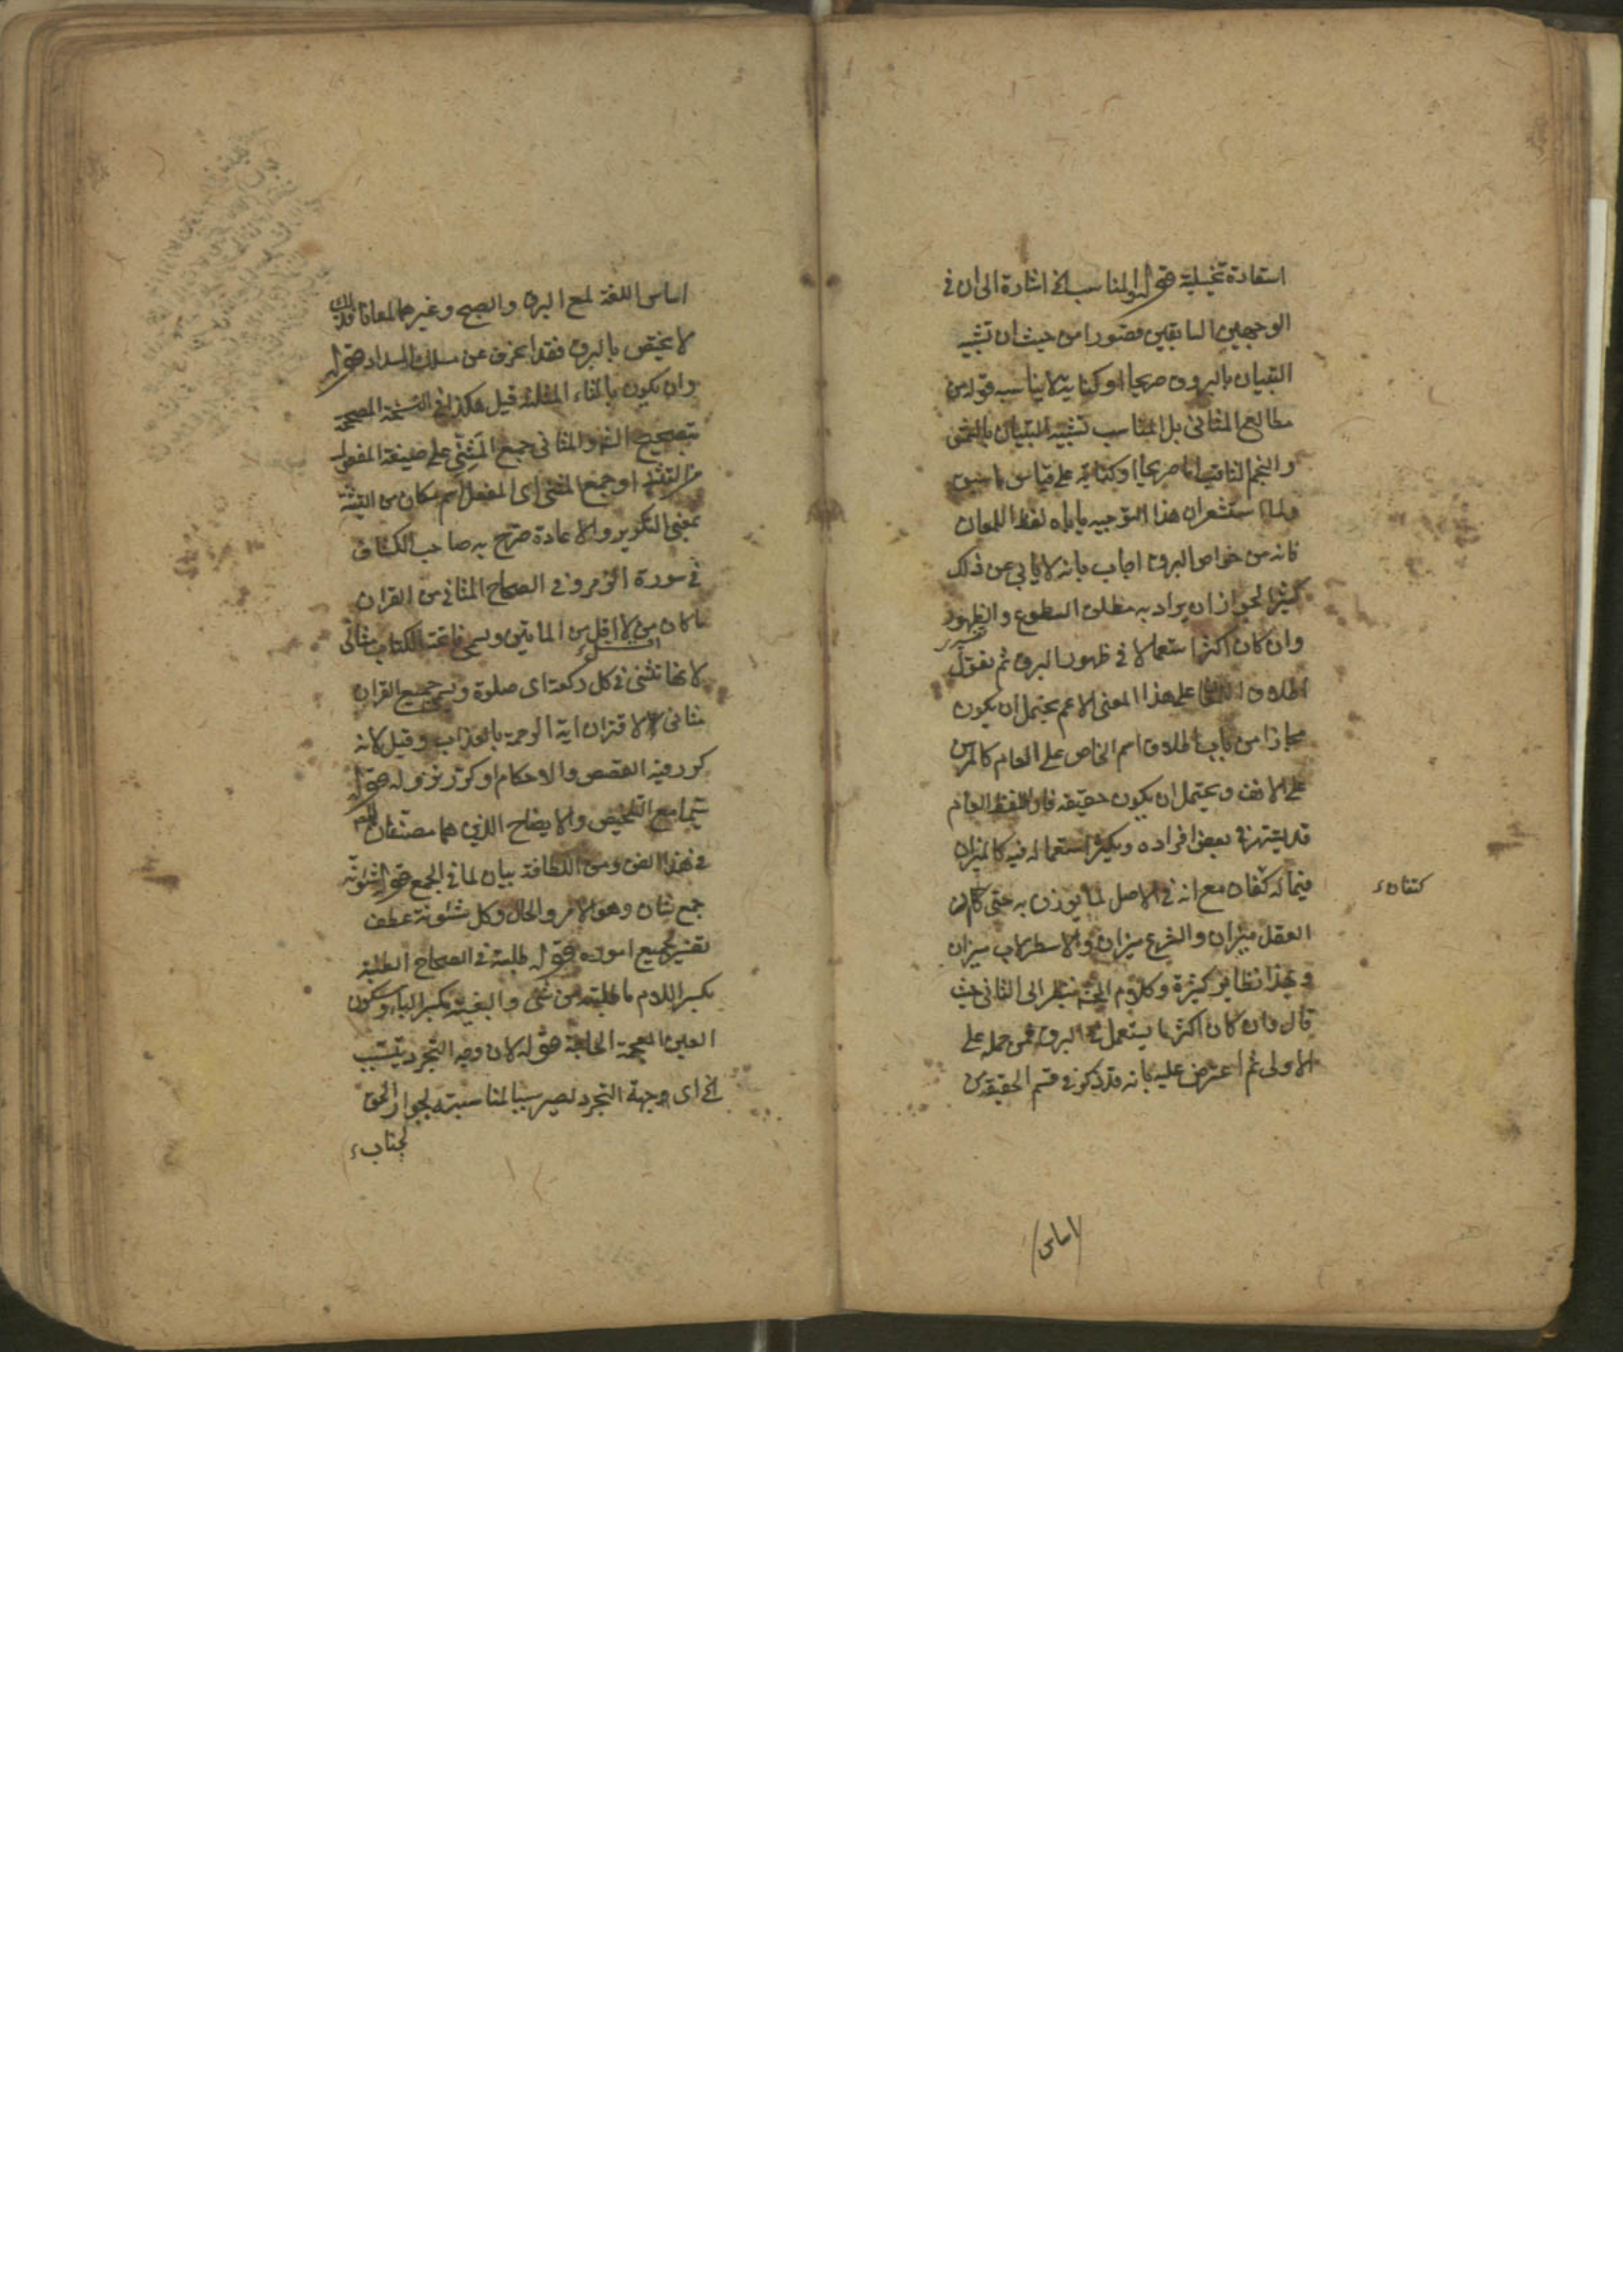 استعارة تخييلية قوله والمناسب الخ اشارة الى ان في
الوجهين السابقين قصورا من حيث ان تشبيه
التبيان بالبروق صريحا او كناية لا يناسب قوله من
مطالع المثاني بل المناسب تشبيه التبيان بالشمس
والنجم الثاقب اما صريحا او كناية على قياس ما سبق
ولما استشعر ان هذا التوجيه ياباه لفظ اللمعان
فانه من خواص البروق اجاب بانه لا يابي عن ذلك
كثيرا لجواز ان يراد به مطلق السطوع والظهور
وان كان اكثر استعمالا في ظهور البروق ثم نقول
اطلاق على هذا المعنى الاعم يحتمل ان يكون
مجازا من باب اطلاق اسم الخاص على العام كالمرسن
على الانف ويحتمل ان يكون حقيقة فان اللفظ العام
قد يشتهر في بعض افراده ويكثر استعماله فيه كالميزان
فيما له كفتان مع انه في الاصل لما يوزن به حتى كان
العقل ميزان والشرع ميزان والاسطرلاب ميزان
ولهذا نظاير كثيرة وكلام ينظر الى الثاني حيث
قال وان كان اكثر ما يستعمل في البروق فمن حمله على
الاولى ثم اعترض عليه بانه قد ذكر في قسم الحقيقة من
كفتان
اساس
اساس اللغة لمع البرق والصبح وغيرهما لمعانا
لا يختص بالبروق فقد انحرف عن مسلك السداد قوله
وان يكون بالثاء المثلثة قيل هكذا في النسخة المصححة
بتصحيح والمثاني جمع المثنى على صيغة المفعول
من التثنية او جمع المثنى اى المفعل اسم مكان من التثنية
بمعنى التكرير والاعادة صرح به صاحب الكشاف
في سورة الزمر وفي الصحاح المثاني من القران
ما كان من لا اقل من المايتين ويسمى فاتحة الكتاب مثانى
لانها تثنى في كل ركعة اى صلوة ويسمى جميع القران
مثانى لاقتران اية الرحمة باية العذاب وقيل لانه
كرر فيه القصص والاحكام او كرر نزوله قوله
سيما مع التلخيص والايضاح الذين هما مصنفان
في هذا الفن ومن اللطافة بيان لما في الجمع قوله شئونه
جمع شان وهو الامر والحال وكل شئونه عطف
تفسير لجميع اموره قوله طلبته في الصحاح الطلبة
بكسر اللام ما طلبته من شئ والبغية بكسر الباء وسكون
الغين المعجمة الحاجة قوله لان وجه التجرد يتسبب
الخ اى وجهة التجرد يصير سببا لمناسبته لجوار الحق
لجناب